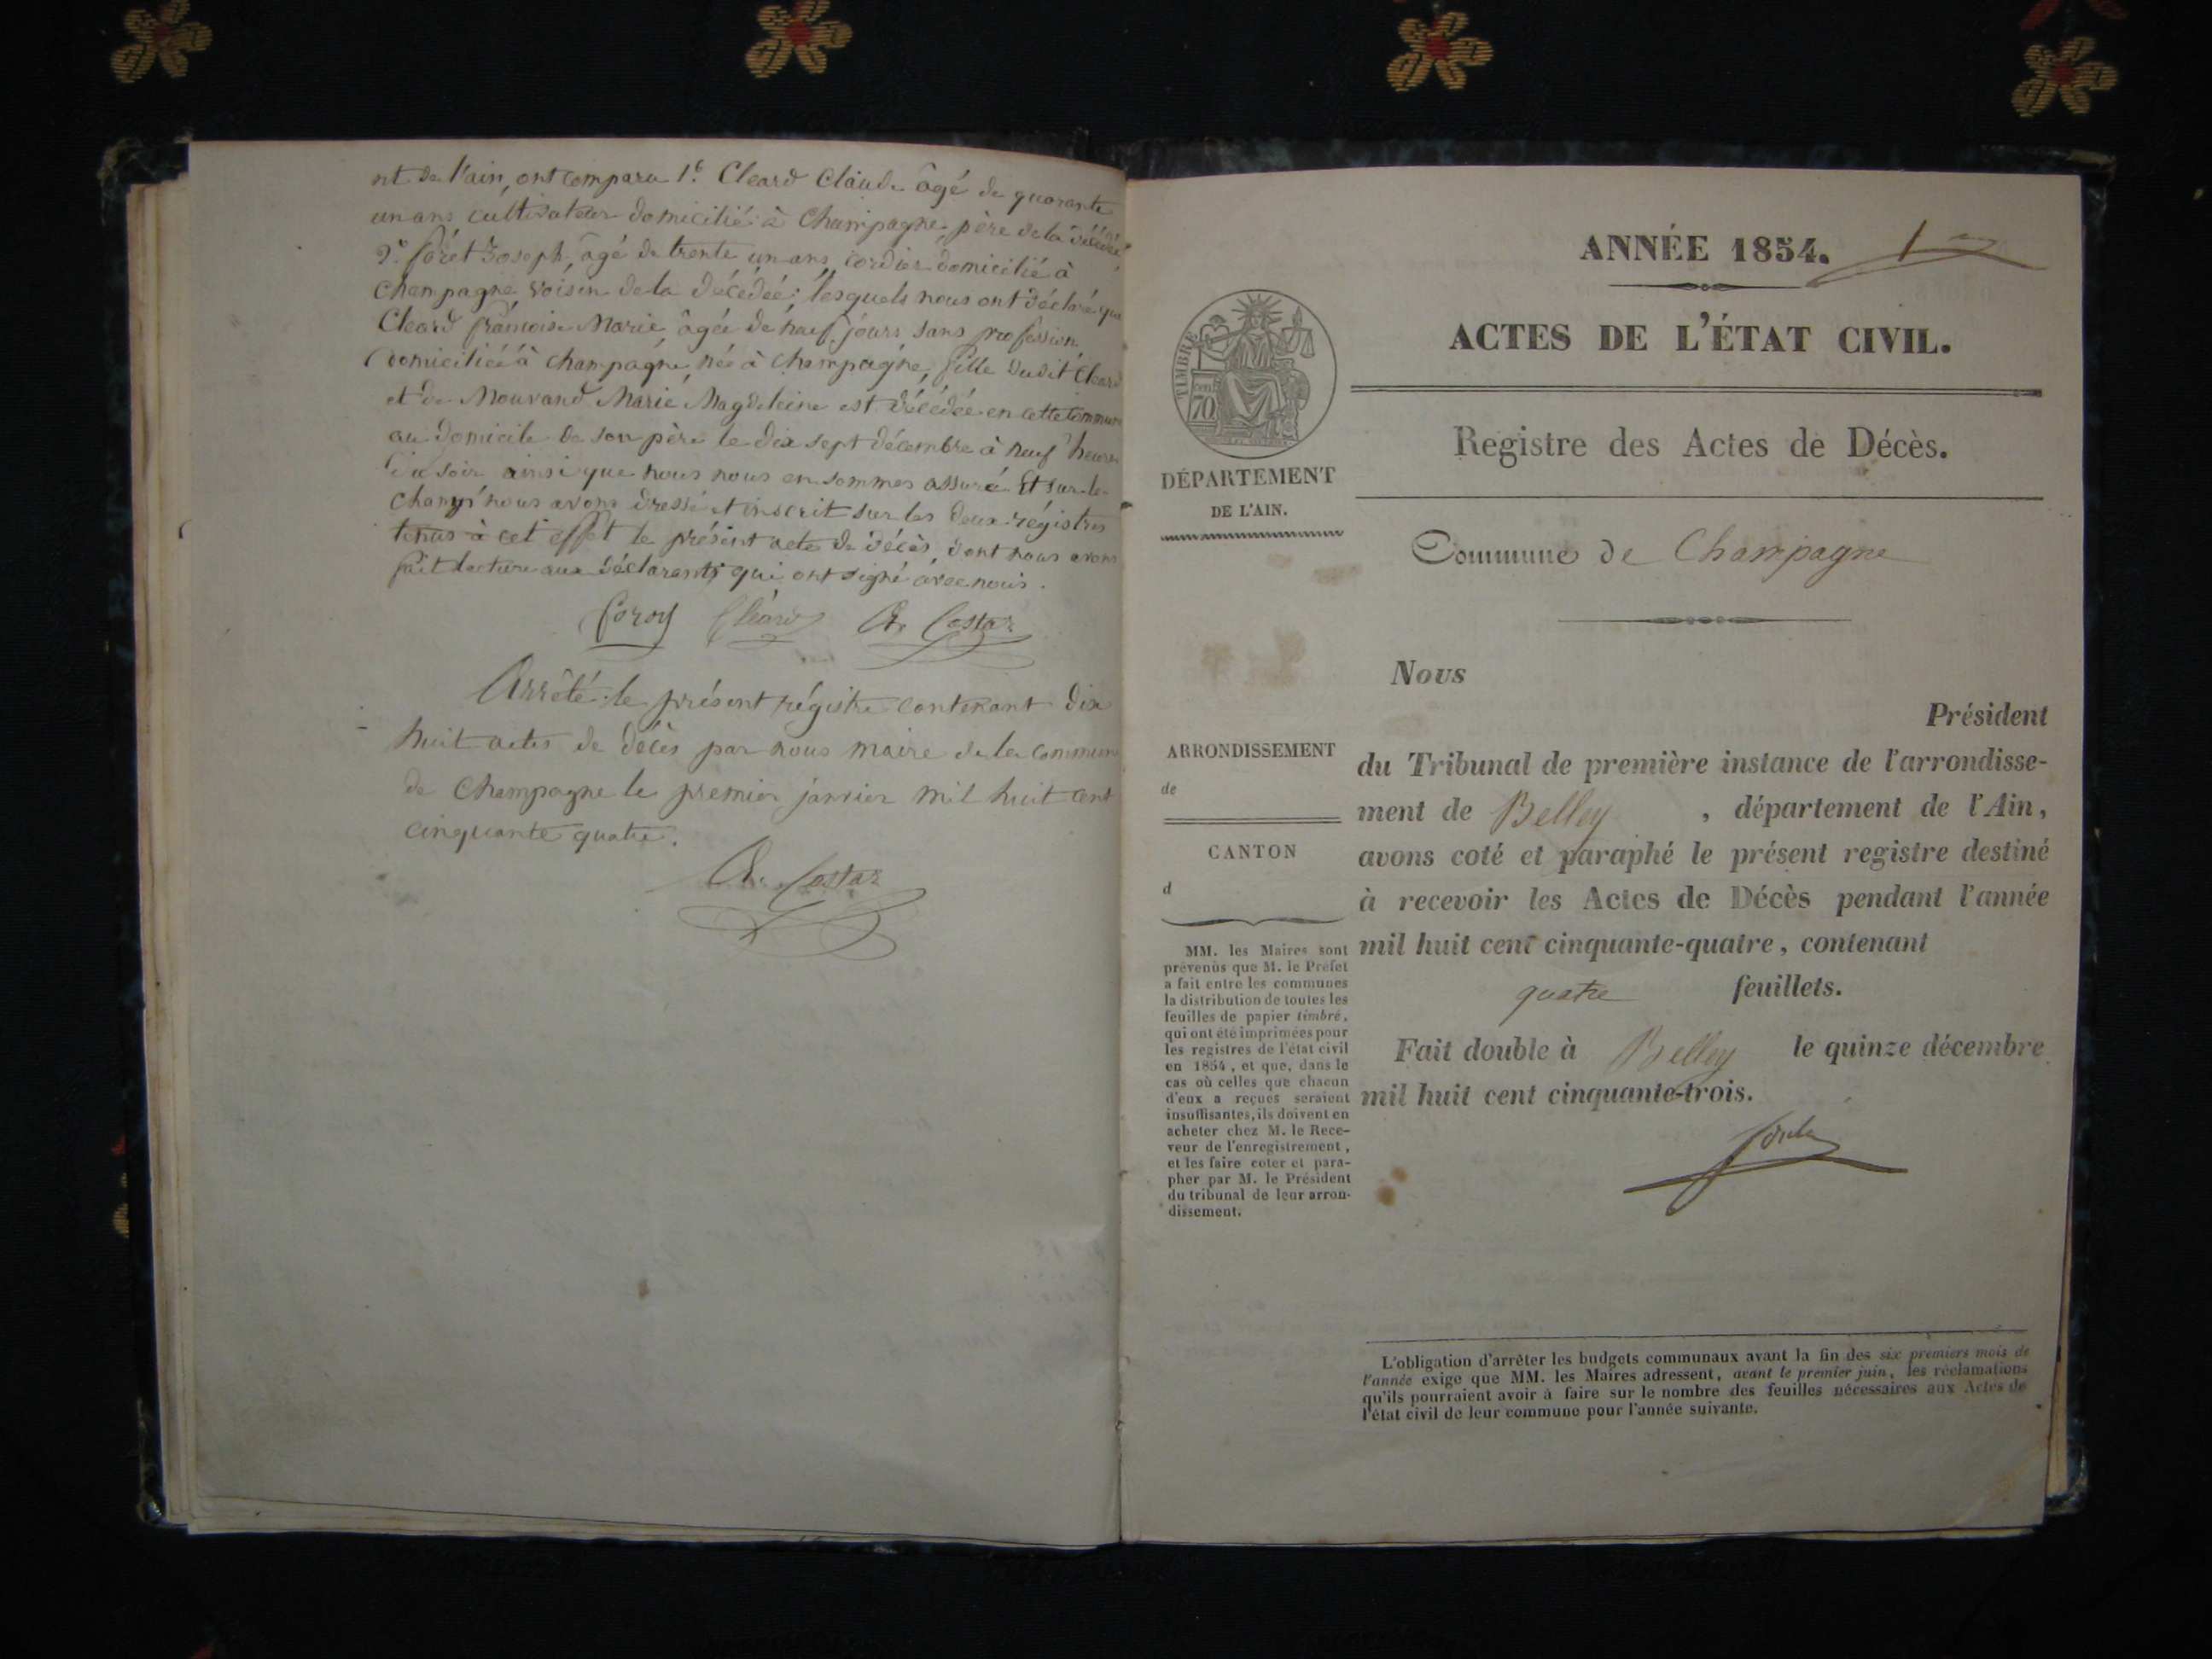 nt de l'ain, ont comparu 1.° Cleard Claude âgé de quarante
un ans cultivateur domicilié à Champagne, père de la décédée
2.° foret Joseph, âgé de trente un ans, cordier domicilié à
champagne voisin de la décédée; lesquels nous ont déclaré que
Cleard françoise Marie, âgée de neuf jours sans profession
domiciliée à champagne, née à champagne, fille dudit Cleard
et de Mouvand Marie Magdeleine est décédée en cette commune
au domicile de son père le dix sept décembre à neuf heures
du soir ainsi que nous nous en sommes assuré. Et sur-le-
champ nous avons dressé et inscrit sur les deux régistres
tenus à cet effet le présent acte de décès, dont nous avons
fait lecture aux déclarants qui ont signé avec nous.
Cleard Costaz
Arrêté le présent régistre contenant dix
huit actes de décès par nous maire de la commune
de Champagne le premier janvier mil huit cent
cinquante quatre.
Costaz
ANNÉE 1854. 1er
ACTES DE L'ÉTAT CIVIL.
TIMBRE
70 cent
Registre des Actes de Décès.
DÉPARTEMENT
DE L'AIN.
Commune de Champagne
Nous
Président
du Tribunal de première instance de l'arrondisse-
ment de Belley , département de l'Ain,
avons coté et paraphé le présent registre destiné
à recevoir les Actes de Décès pendant l'année
mil huit cent cinquante-quatre, contenant
quatre feuillets.
Fait double à Belley le quinze décembre
mil huit cent cinquante-trois.
ARRONDISSEMENT
de
CANTON
d
MM. les Maires sont
prévenus que M. le Préfet
a fait entre les communes
la distribution de toutes les
feuilles de papier timbré,
qui ont été imprimées pour
les registres de l'état civil
en 1854, et que, dans le
cas où celles que chacun
d'eux a reçues seraient
insuffisantes, ils doivent en
acheter chez M. le Rece-
veur de l'enregistrement,
et les faire coter et para-
pher par M. le Président
du tribunal de leur arron-
dissement.
L'obligation d'arrêter les budgets communaux avant la fin des six premiers mois de
l'année exige que MM. les Maires adressent, avant le premier juin, les réclamations
qu'ils pourraient avoir à faire sur le nombre des feuilles nécessaires aux Actes de
l'état civil de leur commune pour l'année suivante.